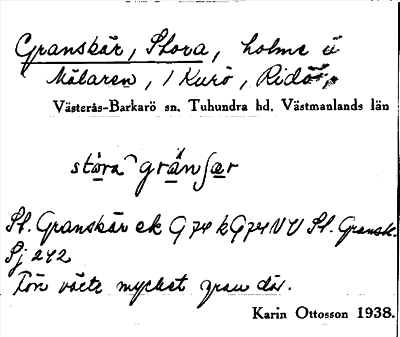 Granskär, Stora, holme i
Mälaren, 1 Kurö, Ridö,
Västerås-Barkarö sn. Tuhundra hd. Västmanlands län
stora gränsær
St. Granskär ek G 74 k G 74 VV St. Gransk.
Sj 242
Förr växte mycket gran där.
Karin Ottosson 1938.